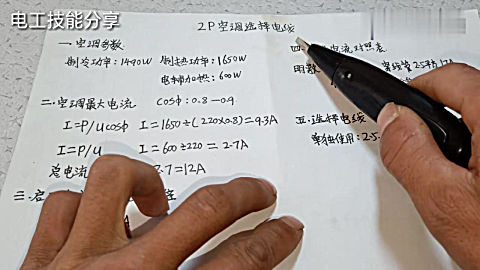 电工技能分享
2P空调选择电线
一.空调参数
制冷功率:1490W 制热功率:1650W
电辅加热:600W
二.空调最大电流 COSφ:0.8—0.9
I=P/Ucosφ I=1650÷(220×0.8)=9.3A
I=P/U I=600÷220=2.7A
总电流 2.7=12A
三.启
四. 电流对照表
明敷 穿线管2.5平方17A
五.选择电线
单独使用:2.5